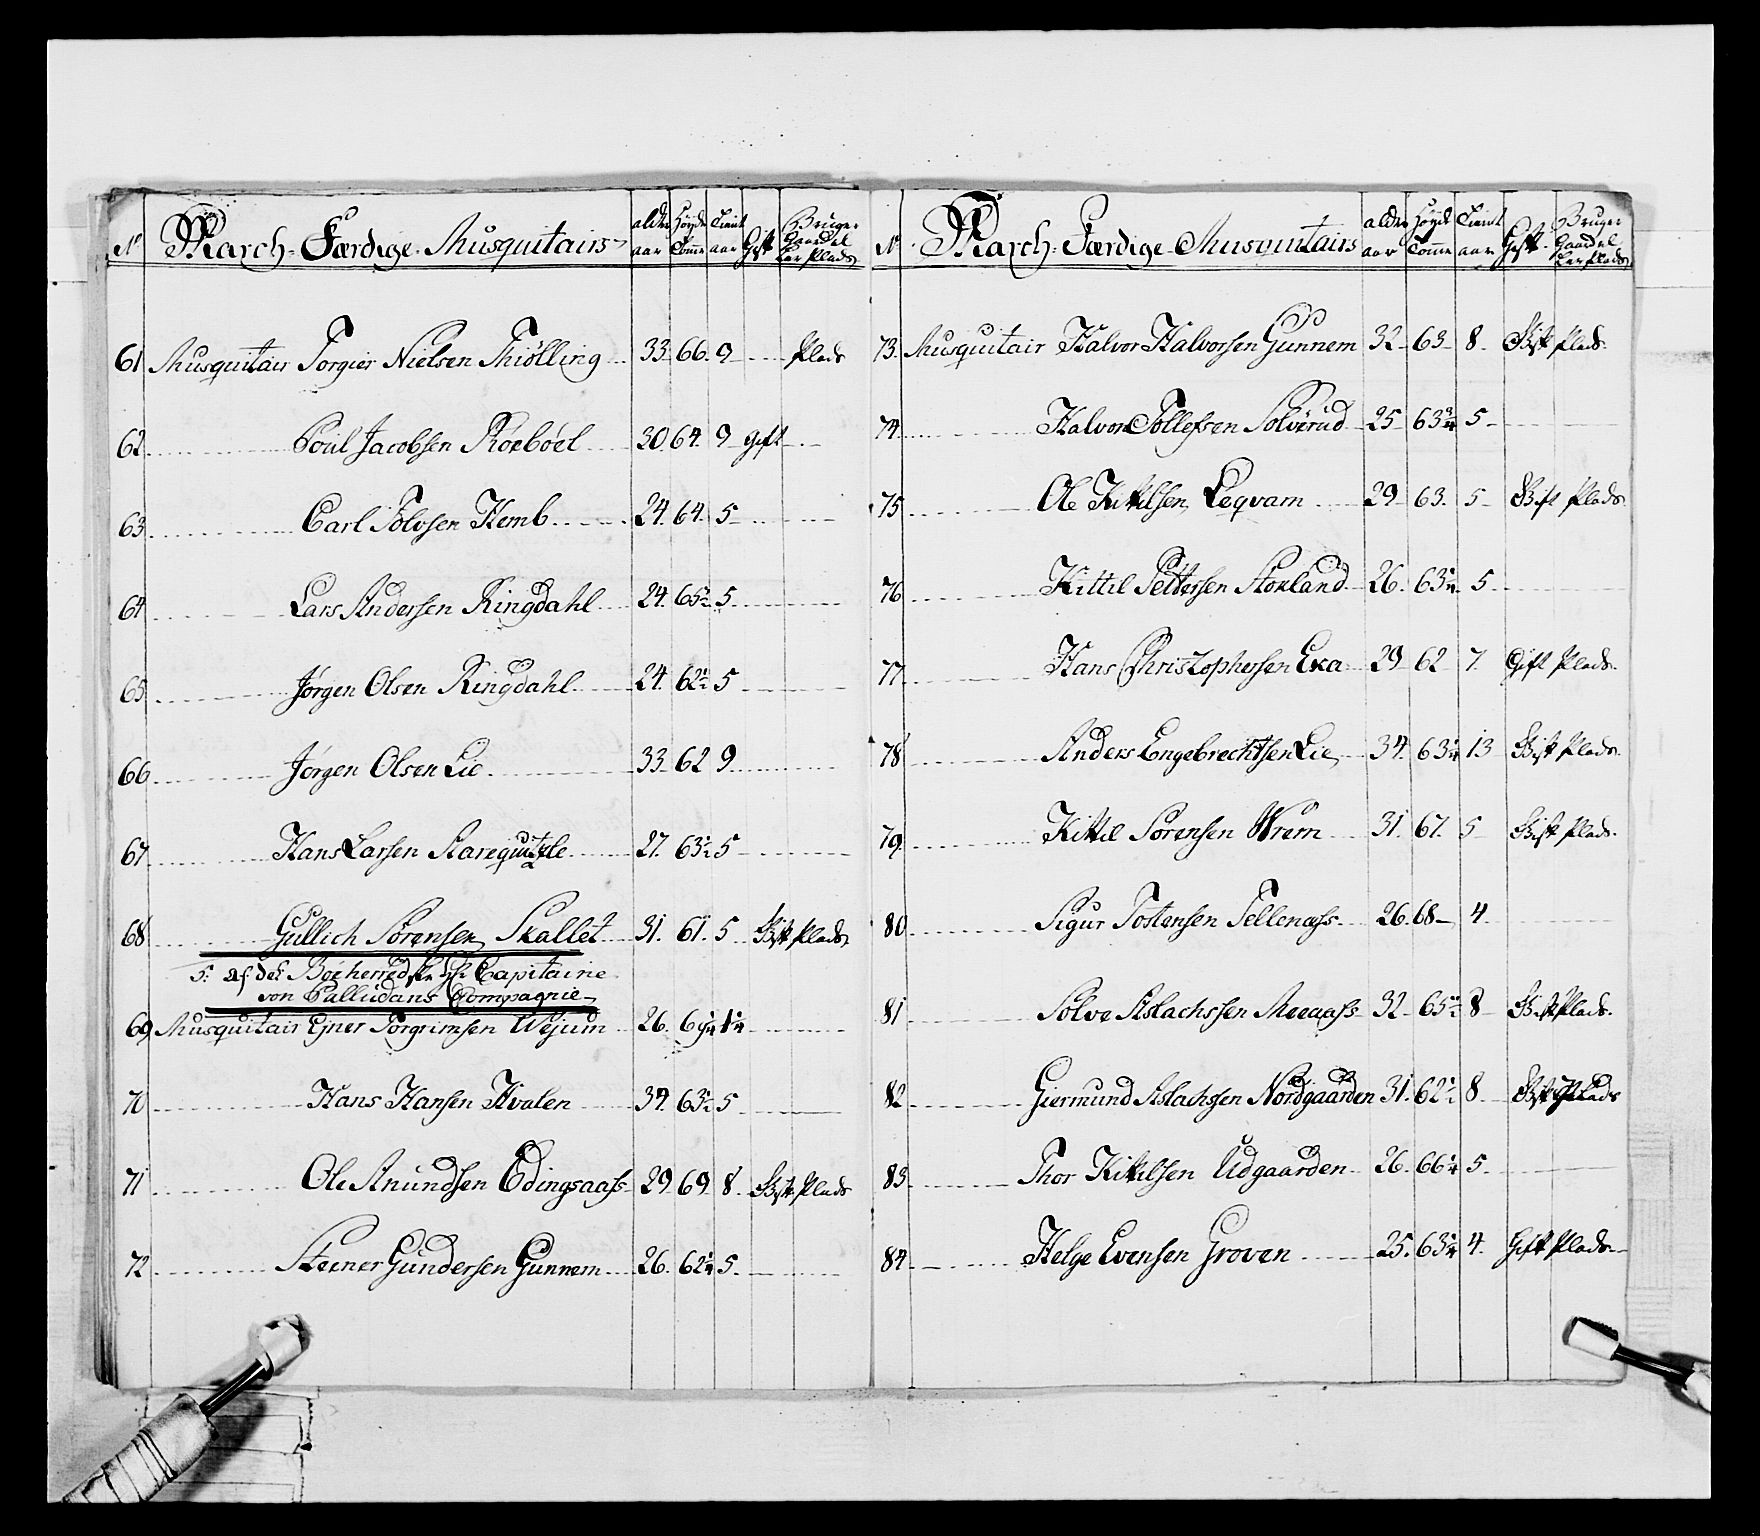 No March-Færdige Musquitairs alder aar Høyde Tomme Tient aar Gift Bruger Gaard el ler Plads
61 Musquitair Torgier Nielsen Thiølling 33. 66. 9 Plads
62 Poul Jacobsen Roebøel 30. 64. 9 gift
63 Carl Solvsen Hemb 24. 64. 5
64 Lars Andersen Ringdahl 24. 65½ 5
65 Jørgen Olsen Ringdahl 24. 62½ 5
66 Jørgen Olsen Lie 33 62 9
67 Hans Larsen 27. 63½ 5
68 Gullich Sørensen Skallet 31. 61. 5 Gift Plads
5: af det Bøeherredske Hr Capitaine
von Palludans Compagnie
69 Musquitair Ejner Torgrimsen Wejum 26.
70 Hans Hansen Hvalen 34. 63½ 5
71 Ole Anundsen Edingsaass 29 69 8 Gift Plads
72 Steener Gundersen Gunnem 26. 62¼ 5
No March-Færdige Musquitairs alder aar Høyde Tomme Tient aar Gift Bruger Gaard el ler Plads
73. Musquitair Halvor Halvorsen Gunnem 32 63 8 Gift Plads
74 Halvor Tollefsen Solverud 25 63¾ 5
75 Ole Kittilsen Leqvam 29 63. 5 Gift Plads
76 Kittil Pettersen Stokland 26. 63¼ 5
77 Hans Christophersen Eka 29 62 7. Gift Plads
78 Anders Engebrechtsen Lie 34. 63¼ 13 Gift Plads
79 Kittil Sørensen Wrem 31. 67. 5 Gift Plads
80 Sigur Tostensen Tellenæss 26. 68 4
81 Solve Aslachssen 32 65½ 8 Gift Plads
82 Giermund Aslachssen Nordgaarden 31. 62½ 8 Gift Plads
83 Thor Kittilsen Udgaarden 26. 66¼ 5
84 Helge Evensen Groven 25. 63¼ 4. Gift Plads